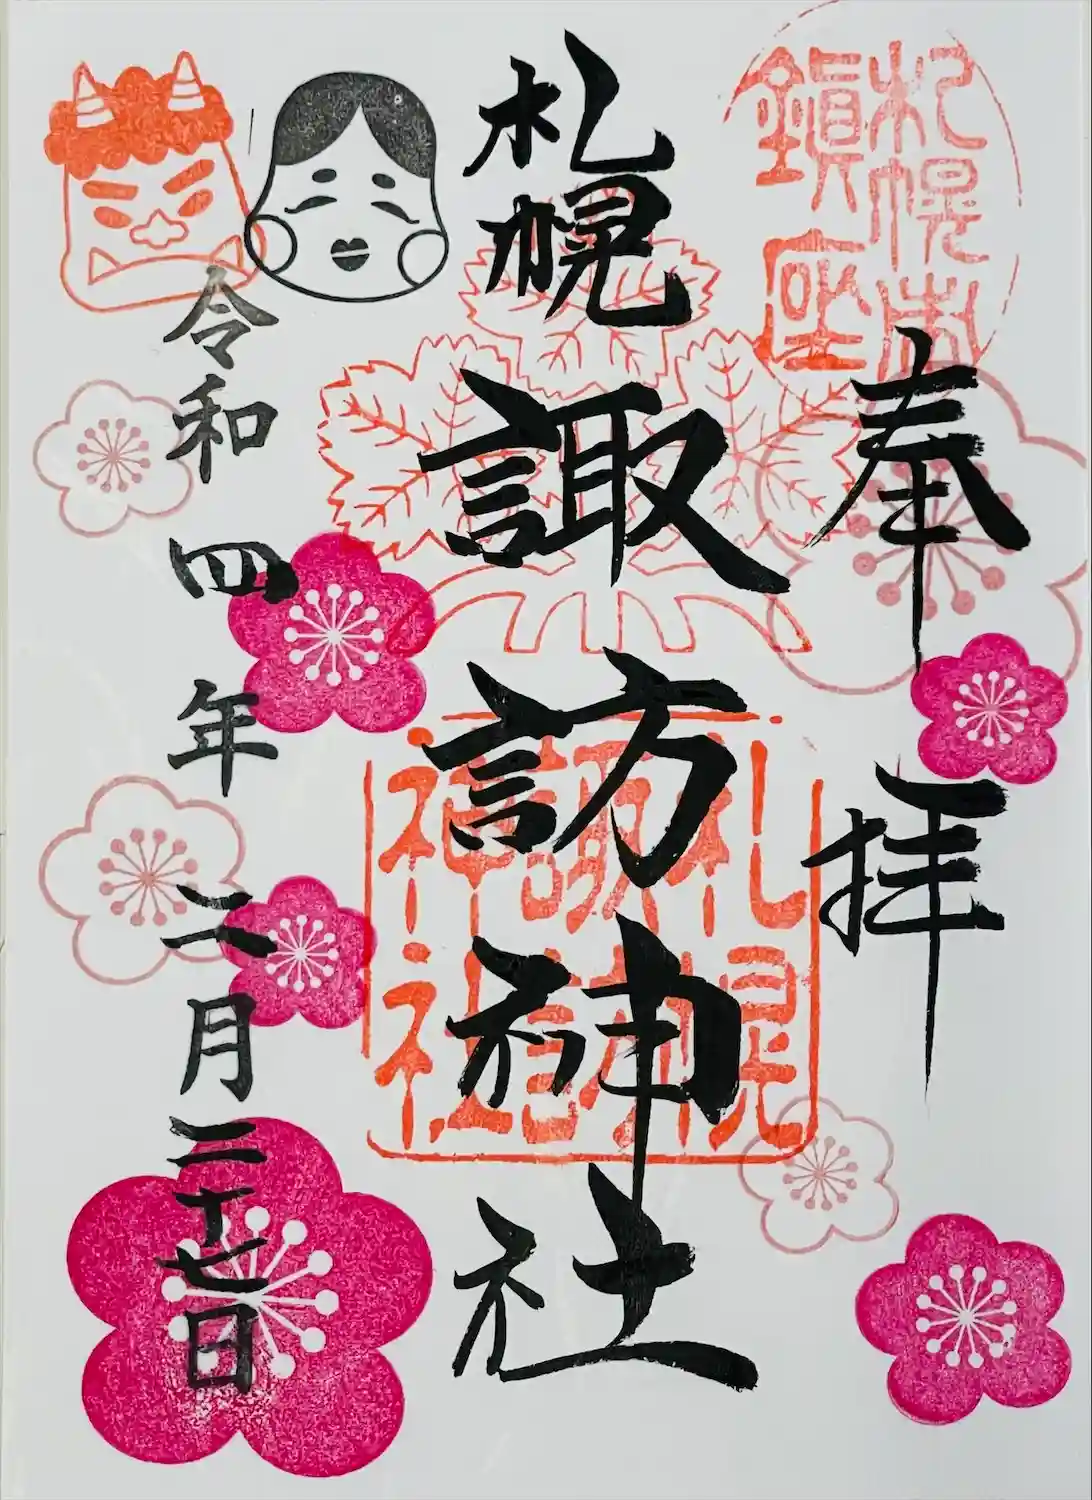 札幌市
鎮座
奉拝
札幌諏訪神社
札幌
諏訪
神社
令和四年二月二十七日